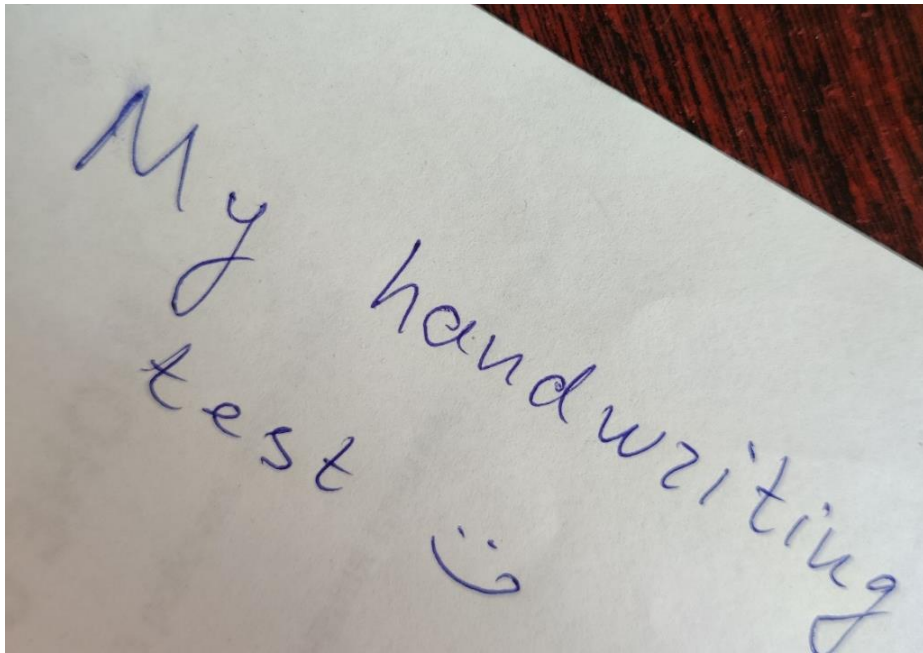 My handwriting
test :)